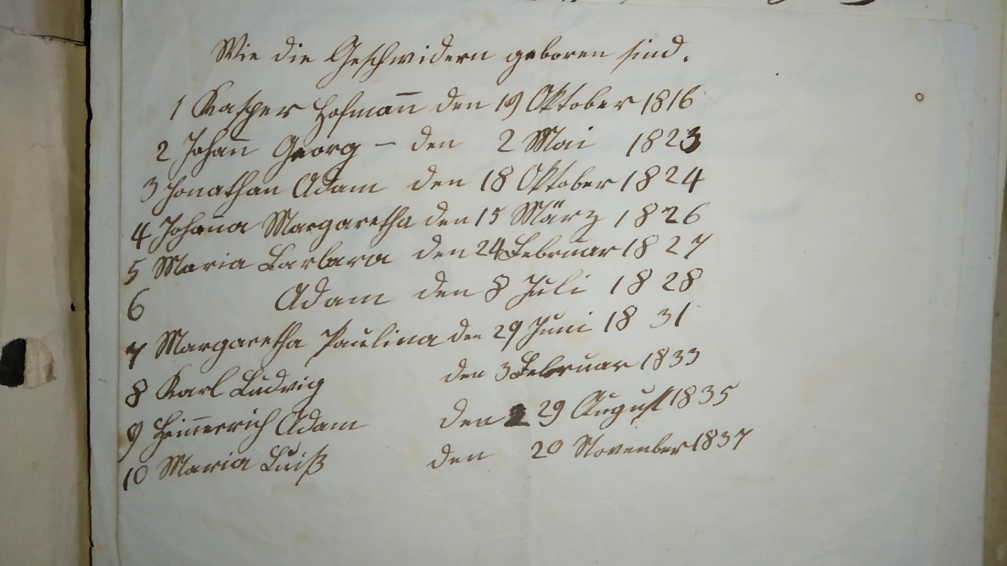 Wie die Geschwidern geboren sind.
1 Kasper Hofmann den 19 Oktober 1816
2 Johann Georg – den 2 Mai 1823
3 Jonathan Adam den 18 Oktober 1824
4 Johana Margaretha den 15 März 1826
5 Maria Barbara den 24 Februar 1827
6 Adam den 8 Juli 1828
7 Margaretha Paulina den 29 Juni 1831
8 Karl Ludwig den 3 Februar 1833
9 Adam den 29 August 1835
10 Maria Luiß den 20 November 1837